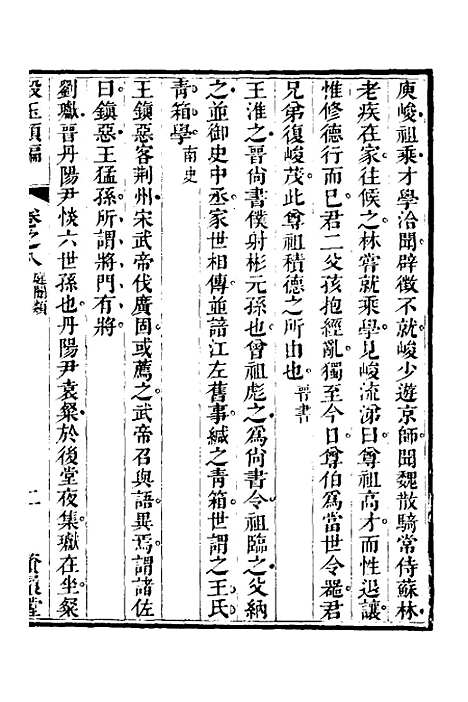 庾峻祖乘才學洽聞辟徵不就峻少遊京師聞魏散騎常侍蘇林
老疾在家往候之林嘗就乘學見峻流涕曰尊祖高才而性退讓
惟修德行而已君二父孩抱經亂獨至今日尊伯爲當世令器君
兄弟復峻茂此尊祖積德之所由也 晉書
王淮之晉尙書僕射彬元孫也曾祖彪之爲尙書令祖臨之父納
之並御史中丞家世相傳並諳江左舊事緘之青箱世謂之王氏
青箱學 南史
王鎭惡客荆州宋武帝伐廣固或薦之武帝召與語異焉謂諸佐
曰鎭惡王猛孫所謂將門有將
劉瓛晉丹陽尹惔六世孫也丹陽尹袁粲於後堂夜集瓛在坐粲
卷之八 二